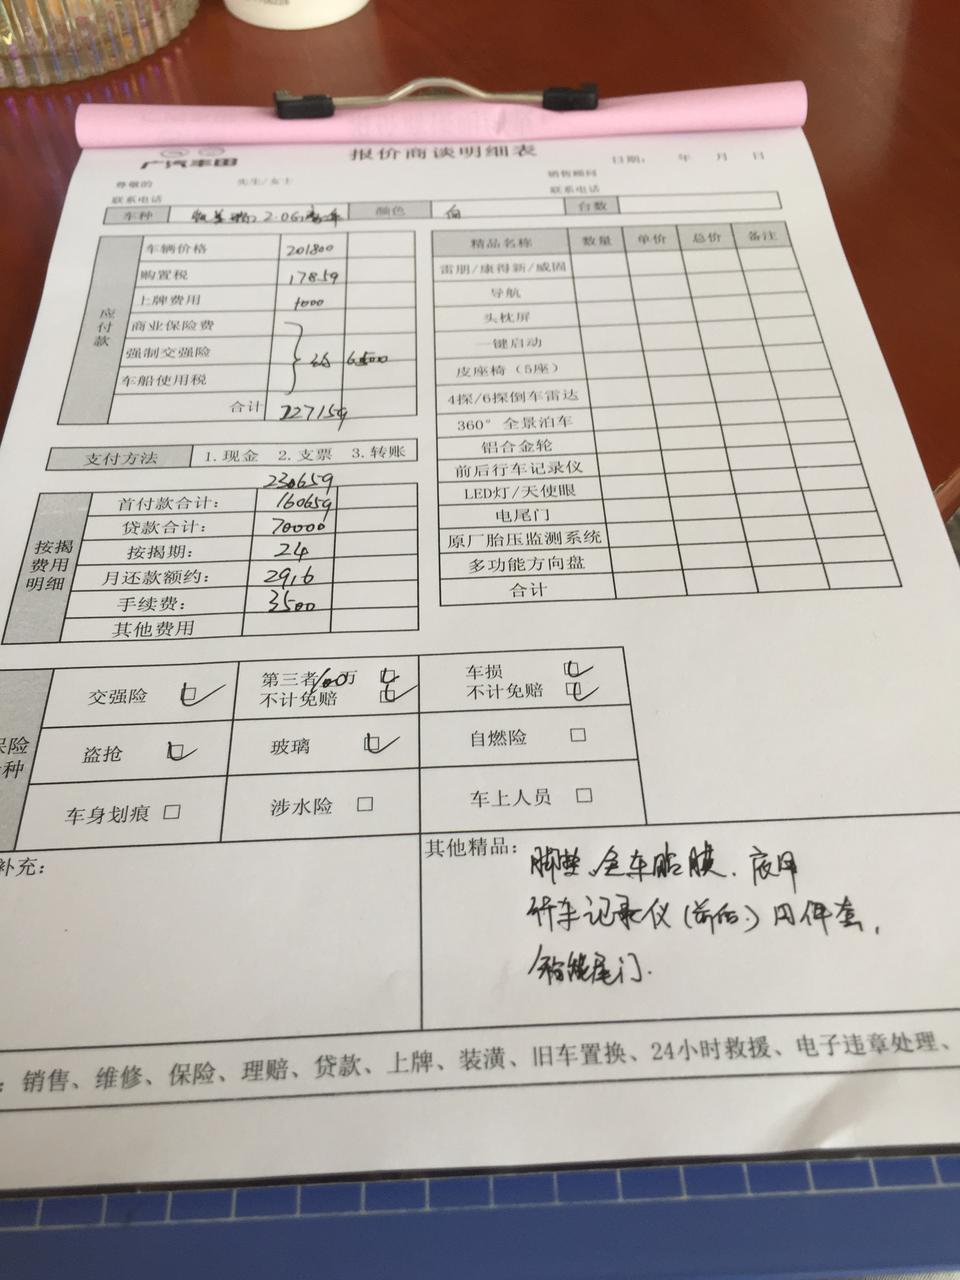 广汽丰田
报价商谈明细表
日期： 年 月 日
尊敬的 先生/女士
销售顾问
联系电话
联系电话
车种 2.0G 颜色 白 台数
应付款
车辆价格 201800
购置税 17859
上牌费用 1000
商业保险费
强制交强险 约 6500
车船使用税
合计 227159
支付方法 1.现金 2.支票 3.转账
230659
按揭费用明细
首付款合计： 160659
贷款合计： 70000
按揭期： 24
月还款额约： 2916
手续费： 3500
其他费用
精品名称 数量 单价 总价 备注
雷朋/康得新/威固
导航
头枕屏
一键启动
皮座椅（5座）
4探/6探倒车雷达
360°全景泊车
铝合金轮
前后行车记录仪
LED灯/天使眼
电尾门
原厂胎压监测系统
多功能方向盘
合计
保险 种
交强险 第三者100万 车损
不计免赔 不计免赔
盗抢 玻璃 自燃险
车身划痕 涉水险 车上人员
补充：
其他精品：
脚垫、全车贴膜、底甲
行车记录仪(前后)、四件套，
智能尾门.
：销售、维修、保险、理赔、贷款、上牌、装潢、旧车置换、24小时救援、电子违章处理、